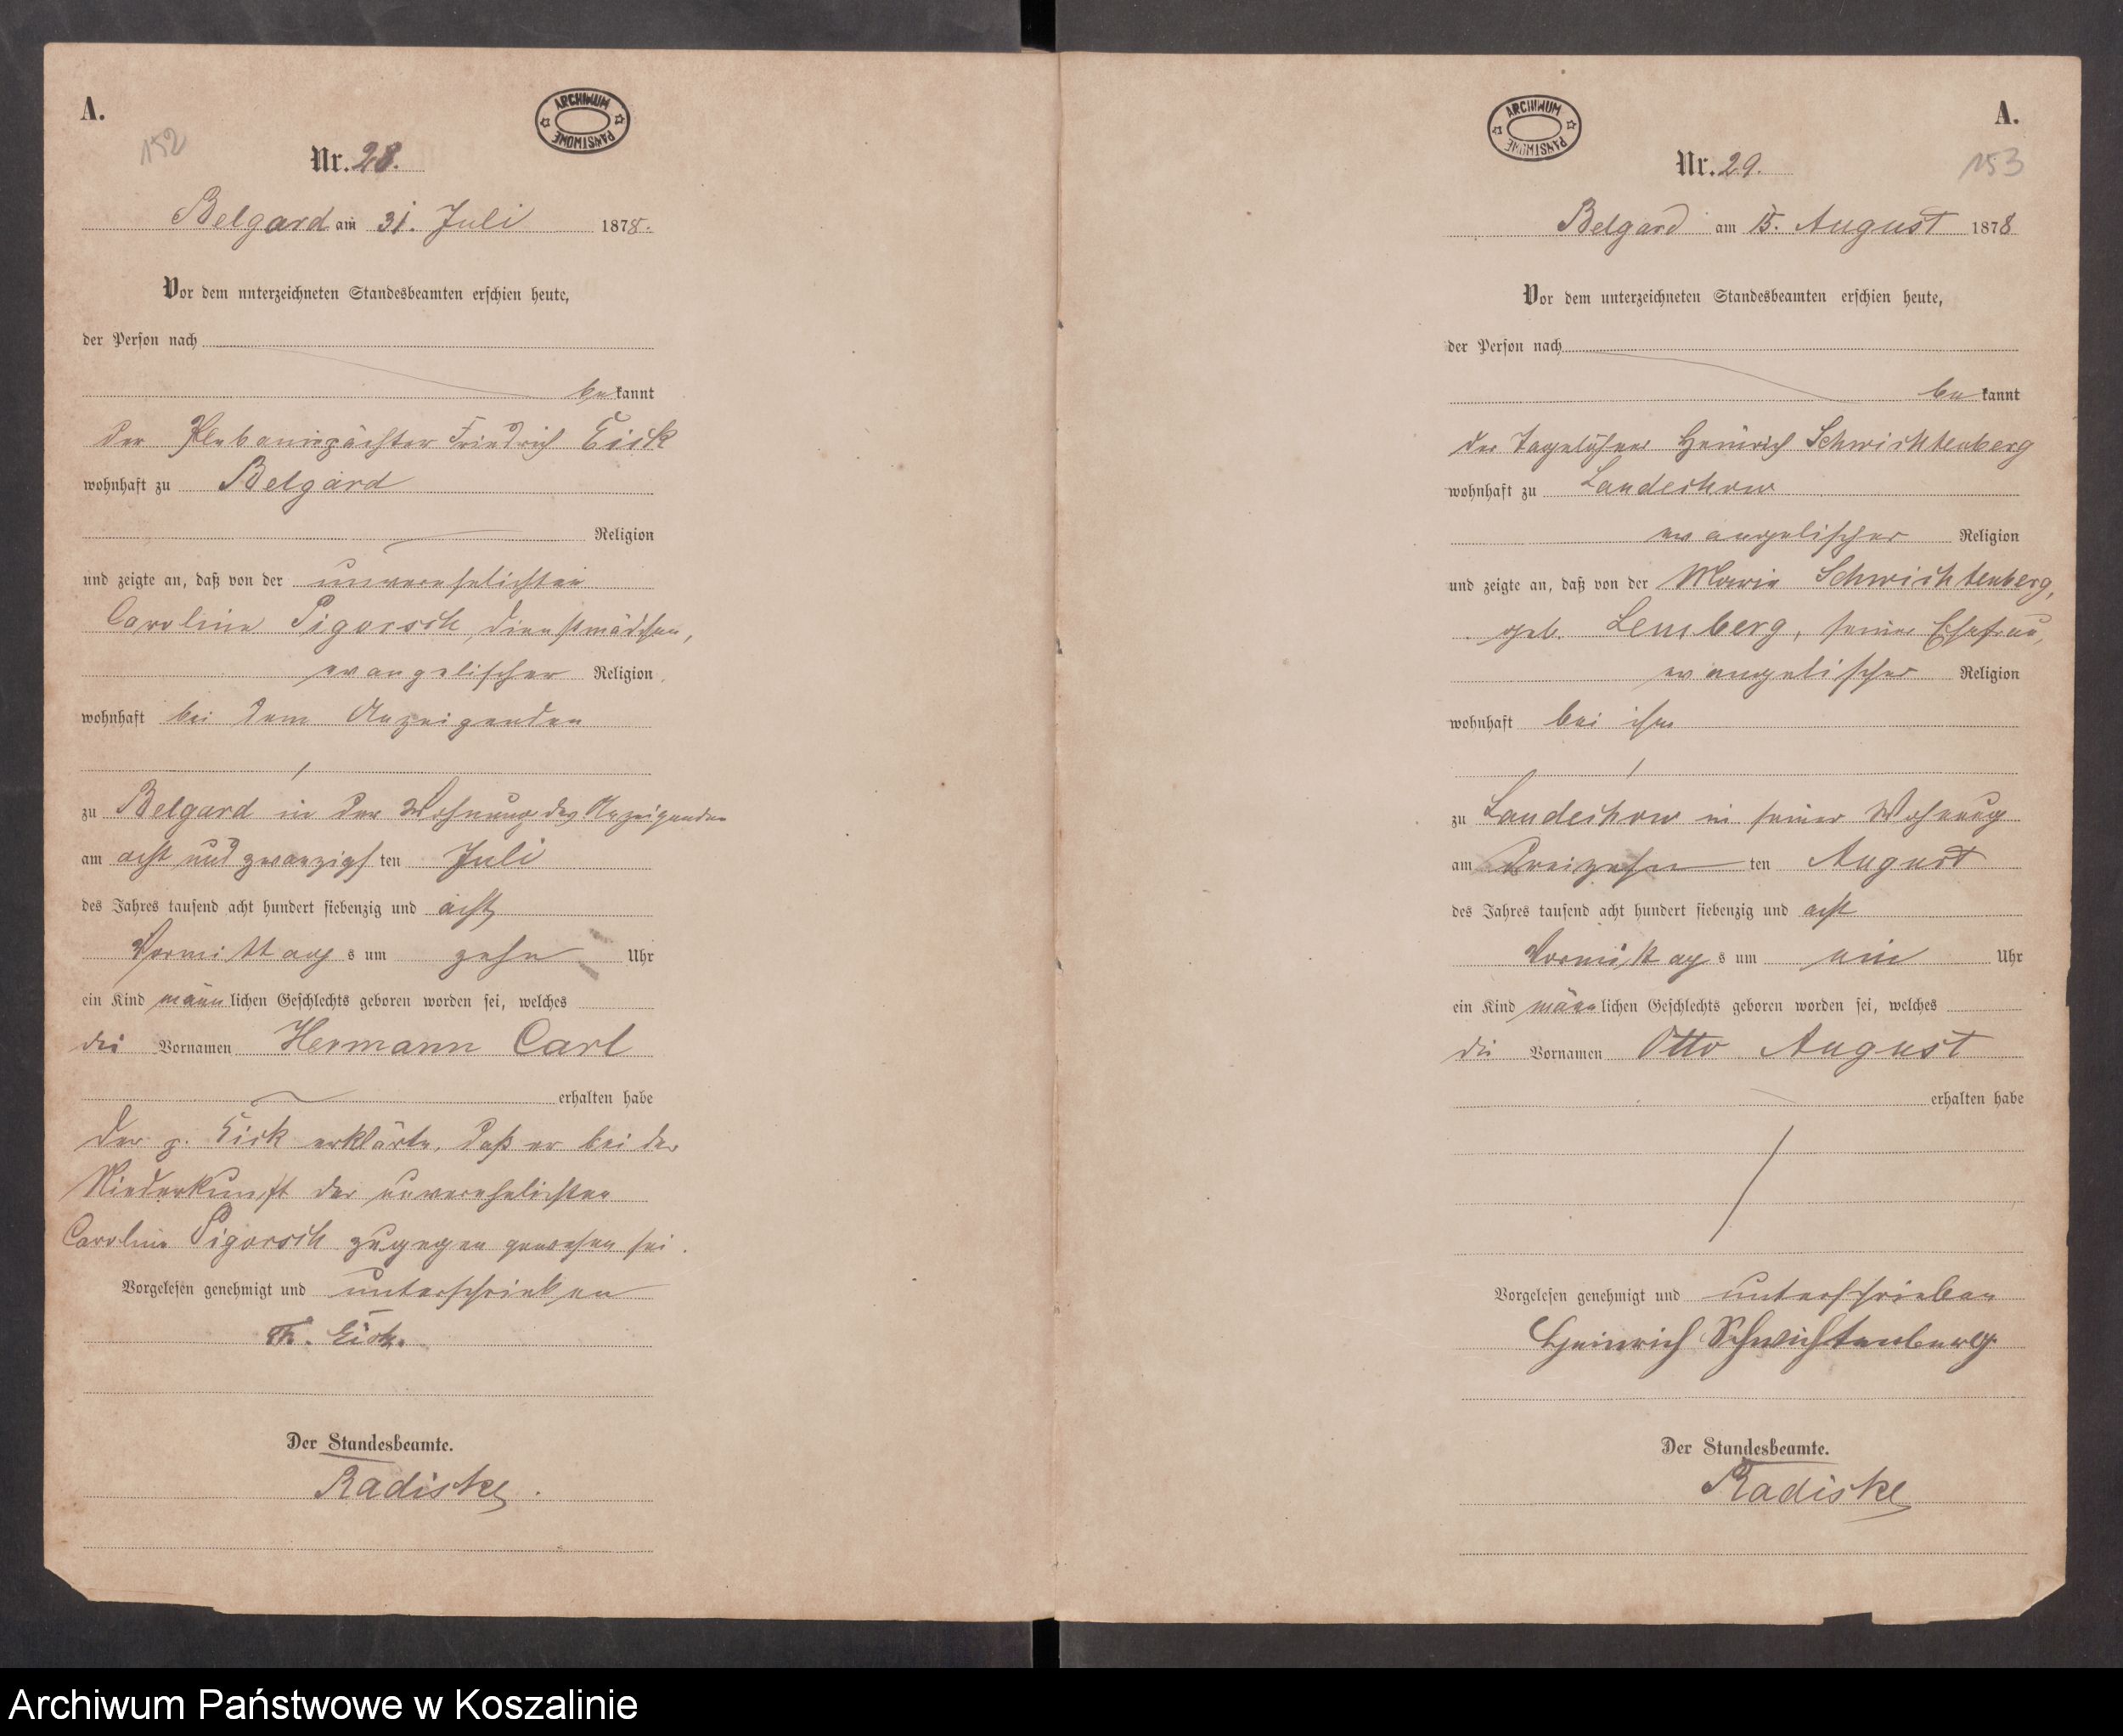 A.
152
ARCHIWUM PAŃSTWOWE
Nr. 28.
Belgard am 31. Juli 1878.
Vor dem unterzeichneten Standesbeamten erschien heute,
der Person nach
bekannt
der Friedrich Eick
wohnhaft zu Belgard
Religion
und zeigte an, daß von der unverehelichten
Caroline Pigorsch, Dienstmädchen,
evangelischer Religion
wohnhaft bei dem Anzeigenden
zu Belgard in der Wohnung des Anzeigenden
am acht und zwanzigsten Juli
des Jahres tausend acht hundert siebenzig und acht
Vormittags um zehn Uhr
ein Kind männlichen Geschlechts geboren worden sei, welches
die Vornamen Hermann Carl
erhalten habe
Der p. Eick erklärte, daß er bei der
Niederkunft der unverehelichten
Caroline Pigorsch zugegen gewesen sei.
Vorgelesen genehmigt und unterschrieben
Eick.
Der Standesbeamte.
Radiske.
A.
153
ARCHIWUM PAŃSTWOWE
Nr. 29.
Belgard am 15. August 1878
Vor dem unterzeichneten Standesbeamten erschien heute,
der Person nach
bekannt
der Tagelöhner Heinrich Schwichtenberg
wohnhaft zu Landechow
evangelischer Religion
und zeigte an, daß von der Marie Schwichtenberg,
geb. Lemberg, seiner Ehefrau,
evangelischer Religion
wohnhaft bei ihm
zu Landechow in seiner Wohnung
am dreizehnten August
des Jahres tausend acht hundert siebenzig und acht
Vormittags um ein Uhr
ein Kind männlichen Geschlechts geboren worden sei, welches
die Vornamen Otto August
erhalten habe
Vorgelesen genehmigt und unterschrieben
Heinrich Schwichtenberg
Der Standesbeamte.
Radiske
Archiwum Państwowe w Koszalinie